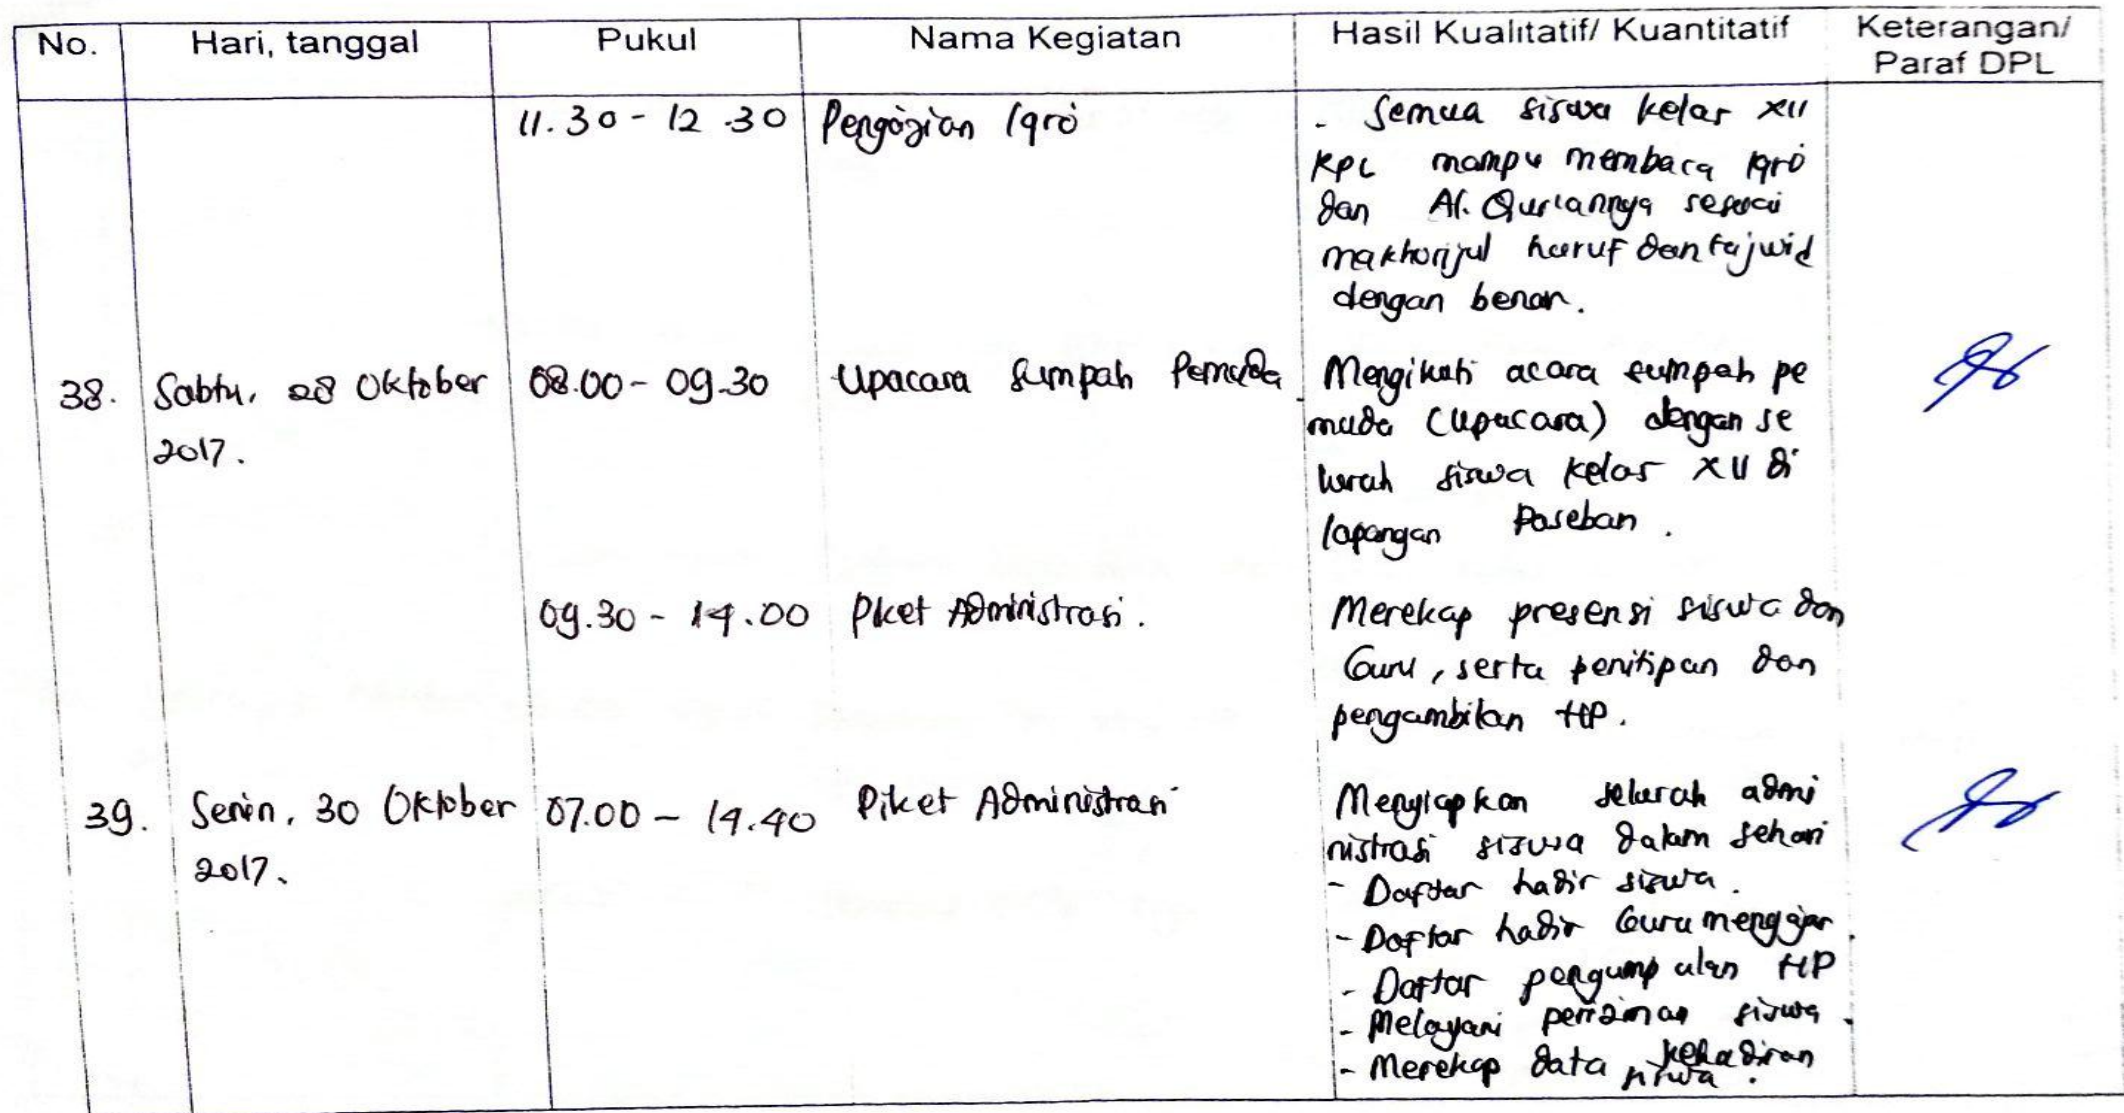 No. Hari, tanggal Pukul Nama Kegiatan Hasil Kualitatif/ Kuantitatif Keterangan/
Paraf DPL
11.30 - 12.30 Pengajian Iqro - Semua siswa kelas XII
RPL mampu membaca Iqro
dan Al. Qur'annya sesuai
makhorijul huruf dan tajwid
dengan benar.
38. Sabtu, 28 Oktober 08.00 - 09.30 Upacara Sumpah Pemuda Mengikuti acara sumpah pe
2017. muda (Upacara) dengan se
lurah siswa kelas XII di
lapangan Paseban.
09.30 - 14.00 Piket Administrasi. Merekap presensi siswa dan
Guru, serta penitipan dan
pengambilan HP.
39. Senin, 30 Oktober 07.00 - 14.40 Piket Administrasi Menyiapkan selurah admi
2017. nistrasi siswa dalam sehari
- Daftar hadir siswa.
- Daftar hadir Guru mengajar.
- Daftar pengumpulan HP
- Melayani siswa.
- Merekap data kehadiran
siswa.